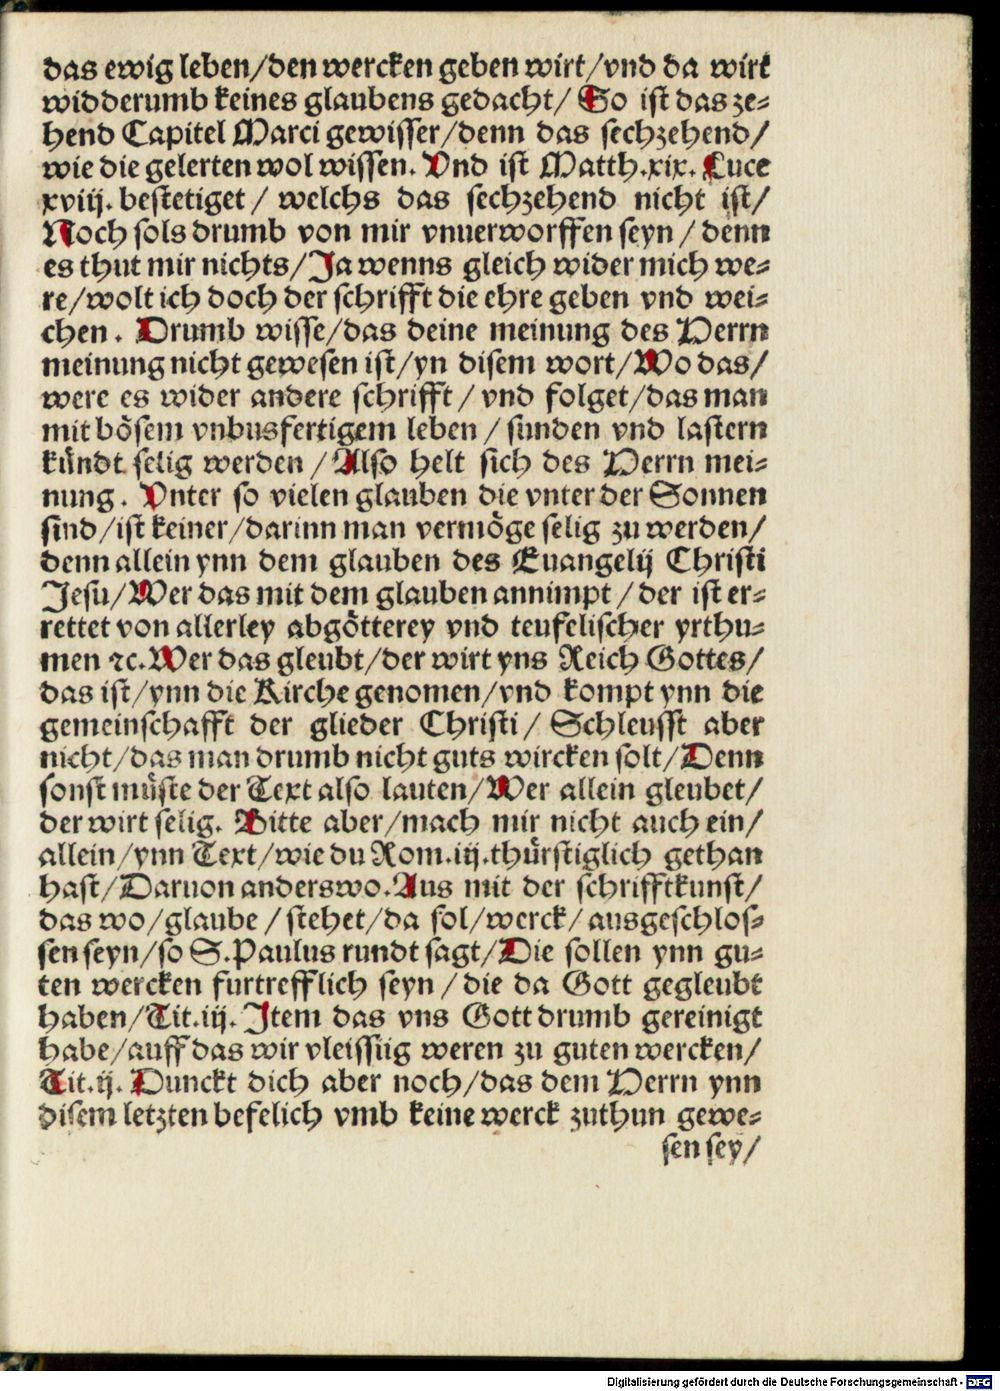 das ewig leben/den wercken geben wirt/vnd da wirt
widderumb keines glaubens gedacht/ So ist das ze⸗
hend Capitel Marci gewisser/denn das sechzehend/
wie die gelerten wol wissen. Vnd ist Matth.xix. Luce
xviij. bestetiget / welchs das sechzehend nicht ist/
Noch sols drumb von mir vnuerworffen seyn / denn
es thut mir nichts/Ja wenns gleich wider mich we⸗
re/wolt ich doch der schrifft die ehre geben vnd wei⸗
chen . Drumb wisse/das deine meinung des Herrn
meinung nicht gewesen ist/yn disem wort/Wo das/
were es wider andere schrifft / vnd folget/das man
mit bösem vnbusfertigem leben / sunden vnd lastern
kündt selig werden / Also helt sich des Herrn mei⸗
nung . Vnter so vielen glauben die vnter der Sonnen
sind/ist keiner/darinn man vermöge selig zu werden/
denn allein ynn dem glauben des Euangelij Christi
Jesu/Wer das mit dem glauben annimpt / der ist er⸗
rettet von allerley abgötterey vnd teufelischer yrthu⸗
men ⁊c.Wer das gleubt/der wirt yns Reich Gottes/
das ist/ynn die Kirche genomen/vnd kompt ynn die
gemeinschafft der glieder Christi/ Schleusst aber
nicht/das man drumb nicht guts wircken solt/Denn
sonst müste der Text also lauten/Wer allein gleubet/
der wirt selig. Bitte aber/mach mir nicht auch ein/
allein/ynn Text/wie du Rom.iij.thürstiglich gethan
hast/Daruon anderswo.Aus mit der schrifftkunst/
das wo/glaube / stehet/da sol/werck/ausgeschlos⸗
sen seyn/so S.Paulus rundt sagt/Die sollen ynn gu⸗
ten wercken furtrefflich seyn / die da Gott gegleubt
haben/Tit.iij. Item das vns Gott drumb gereinigt
habe/auff das wir vleissiig weren zu guten wercken/
Tit.ij. Dunckt dich aber noch/das dem Herrn ynn
disem letzten befelich vmb keine werck zuthun gewe⸗
sen sey/
Digitalisierung gefördert durch die Deutsche Forschungsgemeinschaft - DFG